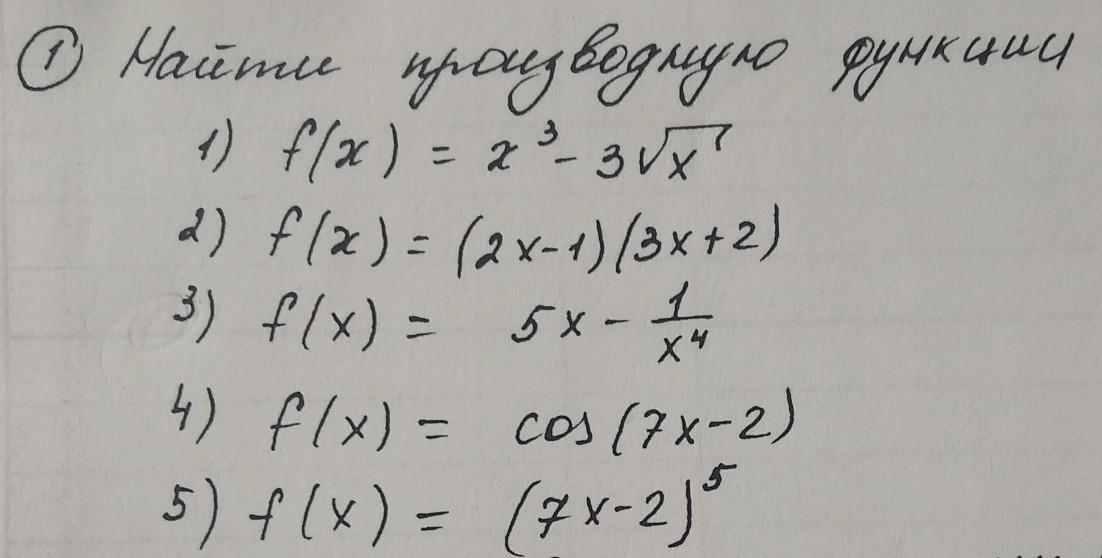 ① Найти производную функции
1) f(x) = x³ - 3√x
2) f(x) = (2x-1)(3x+2)
3) f(x) = 5x - 1/x⁴
4) f(x) = cos(7x-2)
5) f(x) = (7x-2)⁵